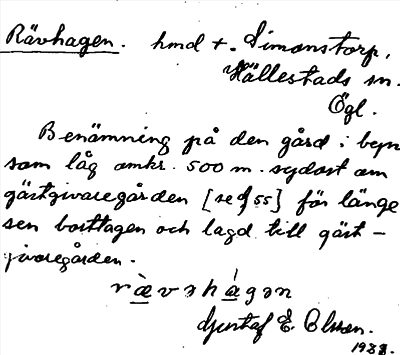 Rävhagen. hmd t. Simonstorp,
Hällestads sn.
Ögl.
Benämning på den gård i byn
som låg omkr. 500 m. sydost om
gästgivaregården [se 55] för länge
sen borttagen och lagd till gäst-
givaregården.
rævəhagən
Gustaf E. Olsson.